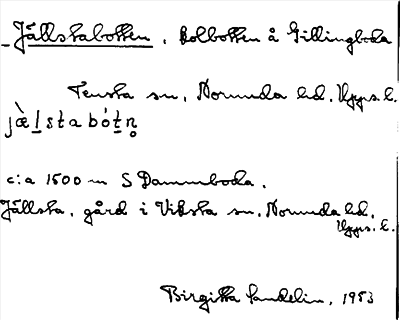 Jällstabotten, Bolbotten å Gillingboda
Tensta sn, Norunda hd. Upps. l.
jæ̀l̲stabót̲n̥
c:a 1500 m S Dammboda.
Jällsta, gård i Viksta sn. Norunda hd.
Upps. l.
Birgitta Sundelin, 1953